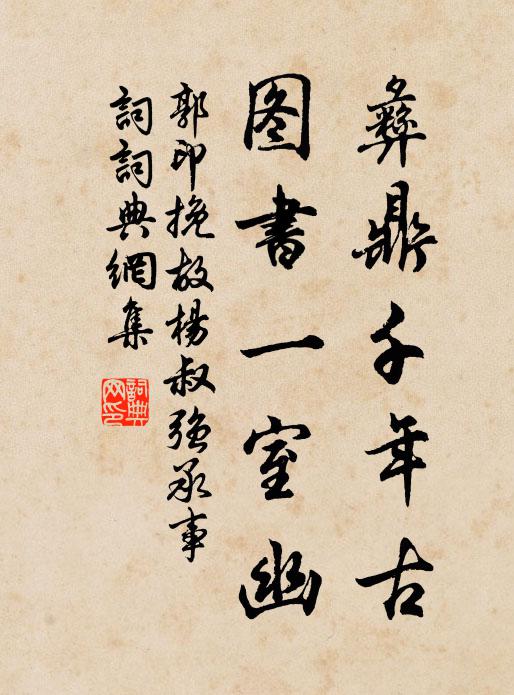 彝鼎千年古
图書一室幽
郭印挽故楊叔强承事
詞詞典網集
詞典网印